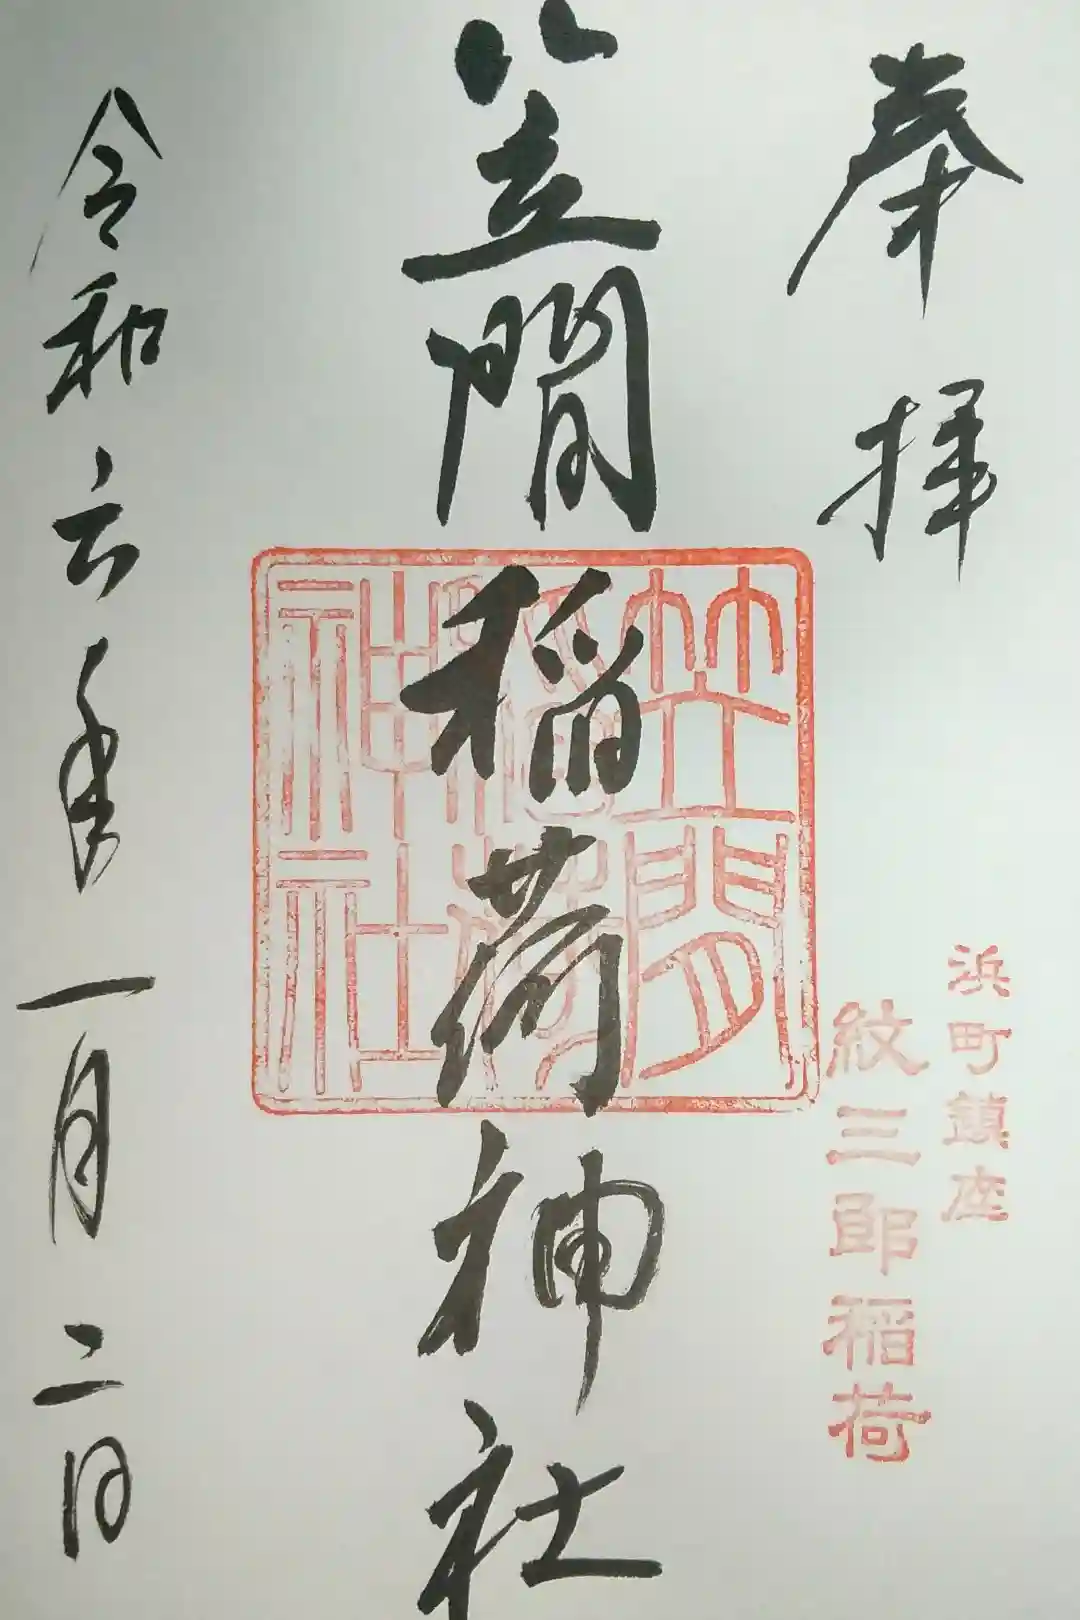 奉拝
浜町鎮座
紋三郎稲荷
笠間稲荷神社
笠間
稲荷
神社
令和六年一月二日